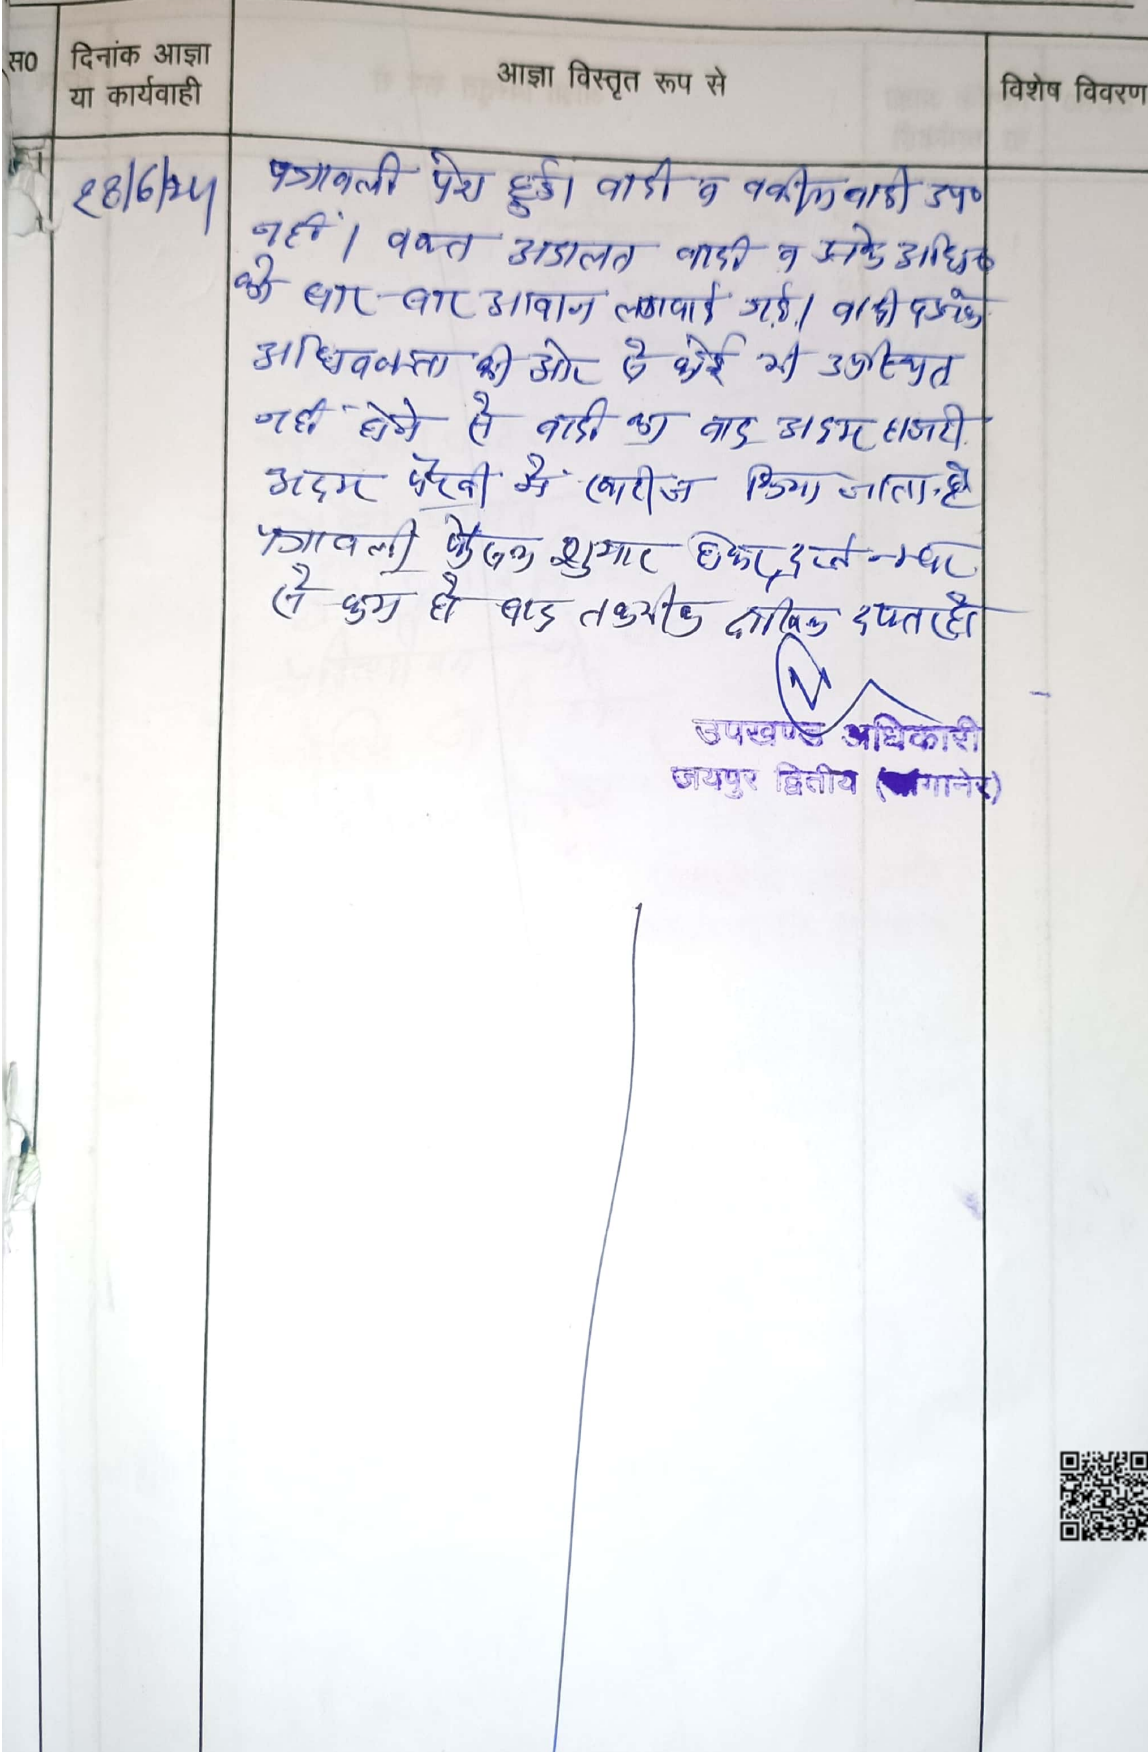 स0
दिनांक आज्ञा
या कार्यवाही
आज्ञा विस्तृत रूप से
विशेष विवरण
पत्रावली पेश हुई। वादी व वकील वादी उप०
नहीं। वक्त अदालत वादी व उसके अधि०
को बार-बार आवाज लगवाई गई। वादी व उसके
अधिवक्ता की ओर से कोई भी उपस्थित
नहीं होने से वादी का वाद अदम हाजरी
अदम पैरवी में खारीज किया जाता है
पत्रावली फैसल शुमार होकर दर्ज नम्बर
से कम हो बाद तकमील दाखिल दफ्तर हो
उपखण्ड अधिकारी
जयपुर द्वितीय (सांगानेर)